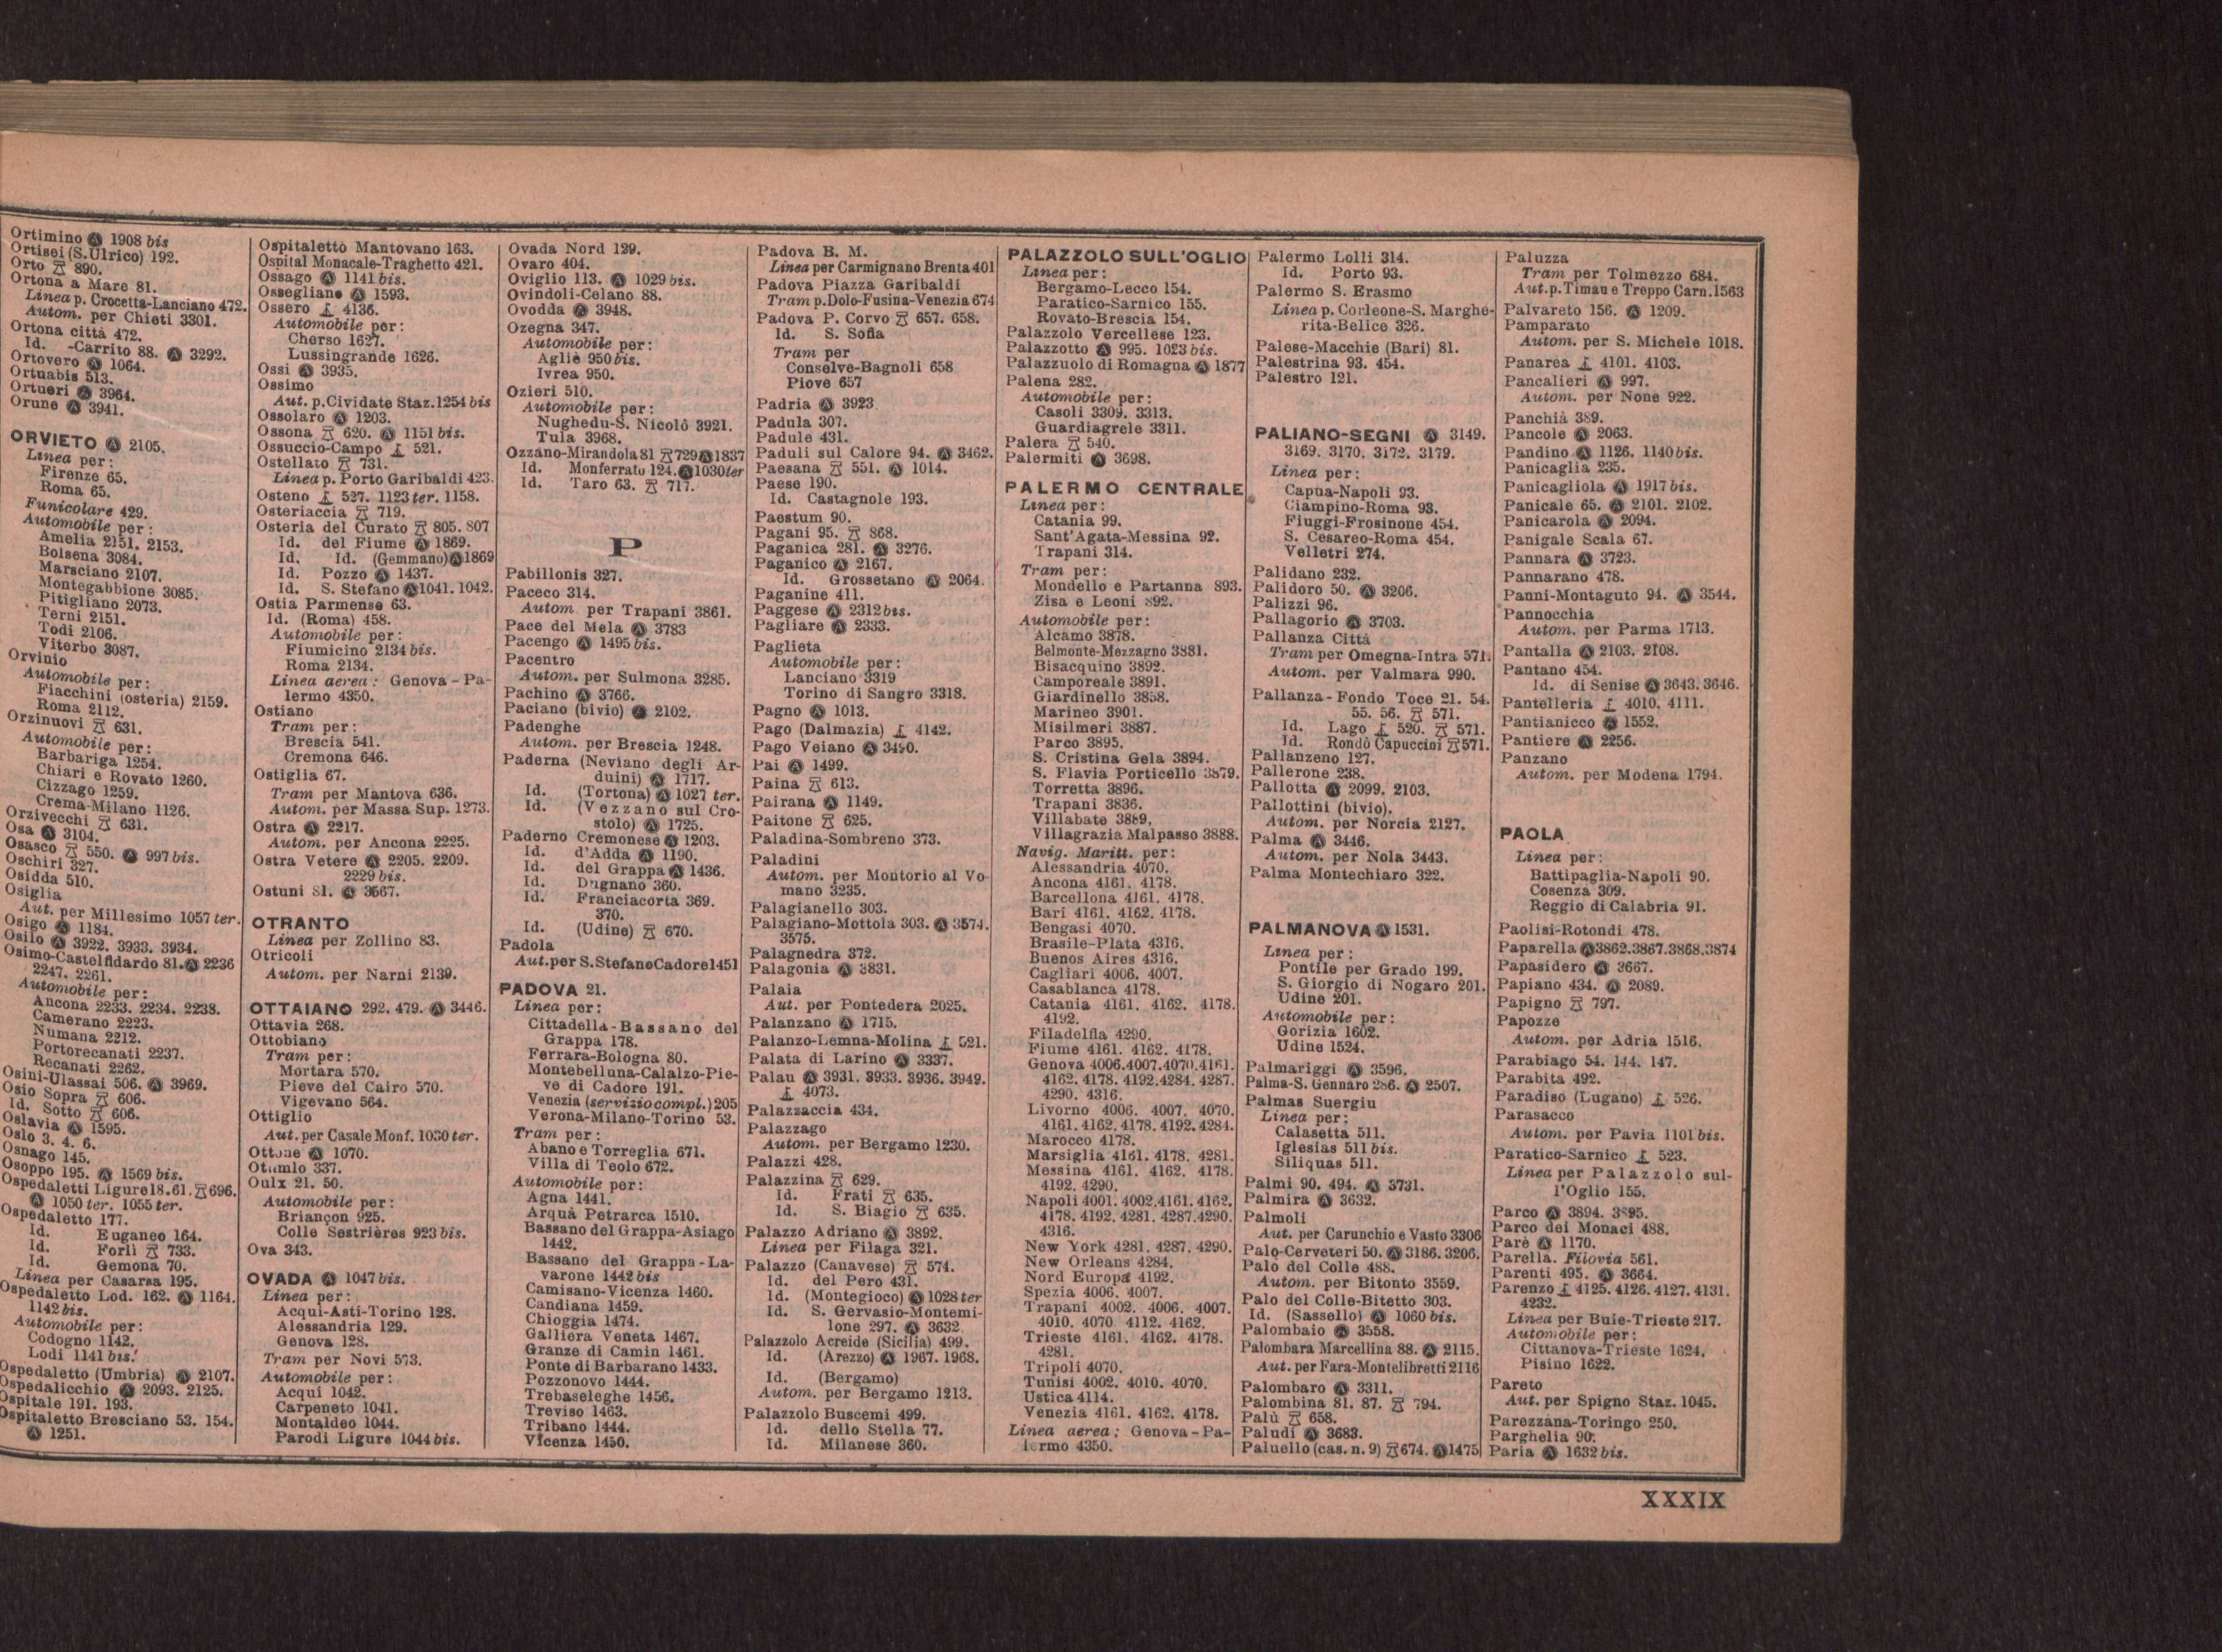 Ortimino Ⓐ 1908 bis
Ortisei (S. Ulrico) 192.
Orto 890.
Ortona a Mare 81.
Linea p. Crocetta-Lanciano 472.
Autom. per Chieti 3301.
Ortona città 472.
Id. -Carrito 88. Ⓐ 3292.
Ortovero Ⓐ 1064.
Ortuabis 513.
Ortueri Ⓐ 3964.
Orune Ⓐ 3941.
ORVIETO Ⓐ 2105.
Linea per:
Firenze 65.
Roma 65.
Funicolare 429.
Automobile per:
Amelia 2151. 2153.
Bolsena 3084.
Marsciano 2107.
Montegabbione 3085.
Pitigliano 2073.
Terni 2151.
Todi 2106.
Viterbo 3087.
Orvinio
Automobile per:
Fiacchini (osteria) 2159.
Roma 2112.
Orzinuovi 631.
Automobile per:
Barbariga 1254.
Chiari e Rovato 1260.
Cizzago 1259.
Crema-Milano 1126.
Orzivecchi 631.
Osa Ⓐ 3104.
Osasco 550. Ⓐ 997 bis.
Oschiri 327.
Osidda 510.
Osiglia
Aut. per Millesimo 1057 ter.
Osigo Ⓐ 1184.
Osilo Ⓐ 3922. 3933. 3934.
Osimo-Castelfidardo 81. Ⓐ 2236
2247. 2261.
Automobile per:
Ancona 2233. 2234. 2238.
Camerano 2223.
Numana 2212.
Portorecanati 2237.
Recanati 2262.
Osini-Ulassai 506. Ⓐ 3969.
Osio Sopra 606.
Id. Sotto 606.
Oslavia Ⓐ 1595.
Oslo 3. 4. 6.
Osnago 145.
Osoppo 195. Ⓐ 1569 bis.
Ospedaletti Ligure 18. 61. 696.
Ⓐ 1050 ter. 1055 ter.
Ospedaletto 177.
Id. Euganeo 164.
Id. Forlì 733.
Id. Gemona 70.
Linea per Casarsa 195.
Ospedaletto Lod. 162. Ⓐ 1164.
1142 bis.
Automobile per:
Codogno 1142.
Lodi 1141 bis.
Ospedaletto (Umbria) Ⓐ 2107.
Ospedalicchio Ⓐ 2093. 2125.
Ospitale 191. 193.
Ospitaletto Bresciano 53. 154.
Ⓐ 1251.
Ospitaletto Mantovano 163.
Ospital Monacale-Traghetto 421.
Ossago Ⓐ 1141 bis.
Ossegliano Ⓐ 1593.
Ossero 4136.
Automobile per:
Cherso 1627.
Lussingrande 1626.
Ossi Ⓐ 3935.
Ossimo
Aut. p. Cividate Staz. 1254 bis
Ossolaro Ⓐ 1203.
Ossona 620. Ⓐ 1151 bis.
Ossuccio-Campo 521.
Ostellato 731.
Linea p. Porto Garibaldi 423.
Osteno 527. 1123 ter. 1158.
Osteriaccia 719.
Osteria del Curato 805. 807
Id. del Fiume Ⓐ 1869.
Id. Id. (Gemmano) Ⓐ 1869
Id. Pozzo Ⓐ 1437.
Id. S. Stefano Ⓐ 1041. 1042.
Ostia Parmense 63.
Id. (Roma) 458.
Automobile per:
Fiumicino 2134 bis.
Roma 2134.
Linea aerea: Genova-Pa-
lermo 4350.
Ostiano
Tram per:
Brescia 541.
Cremona 646.
Ostiglia 67.
Tram per Mantova 636.
Autom. per Massa Sup. 1273.
Ostra Ⓐ 2217.
Autom. per Ancona 2225.
Ostra Vetere Ⓐ 2205. 2209.
2229 bis.
Ostuni 81. Ⓐ 3567.
OTRANTO
Linea per Zollino 83.
Otricoli
Autom. per Narni 2139.
OTTAIANO 292. 479. Ⓐ 3446.
Ottavia 268.
Ottobiano
Tram per:
Mortara 570.
Pieve del Cairo 570.
Vigevano 564.
Ottiglio
Aut. per Casale Monf. 1030 ter.
Ottone Ⓐ 1070.
Otumlo 337.
Oulx 21. 50.
Automobile per:
Briançon 925.
Colle Sestrières 923 bis.
Ova 343.
OVADA Ⓐ 1047 bis.
Linea per:
Acqui-Asti-Torino 128.
Alessandria 129.
Genova 128.
Tram per Novi 573.
Automobile per:
Acqui 1042.
Carpeneto 1041.
Montaldeo 1044.
Parodi Ligure 1044 bis.
Ovada Nord 129.
Ovaro 404.
Oviglio 113. Ⓐ 1029 bis.
Ovindoli-Celano 88.
Ovodda Ⓐ 3948.
Ozegna 347.
Automobile per:
Agliè 950 bis.
Ivrea 950.
Ozieri 510.
Automobile per:
Nughedu-S. Nicolò 3921.
Tula 3968.
Ozzano-Mirandola 81 729 Ⓐ 1837
Id. Monferrato 124. Ⓐ 1030 ter
Id. Taro 63. 717.
P
Pabillonis 327.
Paceco 314.
Autom. per Trapani 3861.
Pace del Mela Ⓐ 3783
Pacengo Ⓐ 1495 bis.
Pacentro
Autom. per Sulmona 3285.
Pachino Ⓐ 3766.
Paciano (bivio) Ⓐ 2102.
Padenghe
Autom. per Brescia 1248.
Paderna (Neviano degli Ar-
duini) Ⓐ 1717.
Id. (Tortona) Ⓐ 1027 ter.
Id. (Vezzano sul Cro-
stolo) Ⓐ 1725.
Paderno Cremonese Ⓐ 1203.
Id. d'Adda Ⓐ 1190.
Id. del Grappa Ⓐ 1436.
Id. Dugnano 360.
Id. Franciacorta 369.
370.
Id. (Udine) 670.
Padola
Aut. per S. Stefano Cadore 1451
PADOVA 21.
Linea per:
Cittadella-Bassano del
Grappa 178.
Ferrara-Bologna 80.
Montebelluna-Calalzo-Pie-
ve di Cadore 191.
Venezia (servizio compl.) 205
Verona-Milano-Torino 53.
Tram per:
Abano e Torreglia 671.
Villa di Teolo 672.
Automobile per:
Agna 1441.
Arquà Petrarca 1510.
Bassano del Grappa-Asiago
1442.
Bassano del Grappa-La-
varone 1442 bis
Camisano-Vicenza 1460.
Candiana 1459.
Chioggia 1474.
Galliera Veneta 1467.
Granze di Camin 1461.
Ponte di Barbarano 1433.
Pozzonovo 1444.
Trebaseleghe 1456.
Treviso 1463.
Tribano 1444.
Vicenza 1450.
Padova B. M.
Linea per Carmignano Brenta 401
Padova Piazza Garibaldi
Tram p. Dolo-Fusina-Venezia 674
Padova P. Corvo 657. 658.
Id. S. Sofia
Tram per
Conselve-Bagnoli 658
Piove 657
Padria Ⓐ 3923
Padula 307.
Padule 431.
Paduli sul Calore 94. Ⓐ 3462.
Paesana 551. Ⓐ 1014.
Paese 190.
Id. Castagnole 193.
Paestum 90.
Pagani 95. 868.
Paganica 281. Ⓐ 3276.
Paganico Ⓐ 2167.
Id. Grossetano Ⓐ 2064.
Paganine 411.
Paggese Ⓐ 2312 bis.
Pagliare Ⓐ 2333.
Paglieta
Automobile per:
Lanciano 3319
Torino di Sangro 3318.
Pagno Ⓐ 1013.
Pago (Dalmazia) 4142.
Pago Veiano Ⓐ 3490.
Pai Ⓐ 1499.
Paina 613.
Pairana Ⓐ 1149.
Paitone 625.
Paladina-Sombreno 373.
Paladini
Autom. per Montorio al Vo-
mano 3235.
Palagianello 303.
Palagiano-Mottola 303. Ⓐ 3574.
3575.
Palagnedra 372.
Palagonia Ⓐ 3831.
Palaia
Aut. per Pontedera 2025.
Palanzano Ⓐ 1715.
Palanzo-Lemna-Molina 521.
Palata di Larino Ⓐ 3337.
Palau Ⓐ 3931. 3933. 3936. 3949.
4073.
Palazzaccia 434.
Palazzago
Autom. per Bergamo 1230.
Palazzi 428.
Palazzina 629.
Id. Frati 635.
Id. S. Biagio 635.
Palazzo Adriano Ⓐ 3892.
Linea per Filaga 321.
Palazzo (Canavese) 574.
Id. del Pero 431.
Id. (Montegioco) Ⓐ 1028 ter
Id. S. Gervasio-Montemi-
lone 297. Ⓐ 3632
Palazzolo Acreide (Sicilia) 499.
Id. (Arezzo) Ⓐ 1967. 1968.
Id. (Bergamo)
Autom. per Bergamo 1213.
Palazzolo Buscemi 499.
Id. dello Stella 77.
Id. Milanese 360.
PALAZZOLO SULL'OGLIO
Linea per:
Bergamo-Lecco 154.
Paratico-Sarnico 155.
Rovato-Brescia 154.
Palazzolo Vercellese 123.
Palazzotto Ⓐ 995. 1023 bis.
Palazzuolo di Romagna Ⓐ 1877
Palena 282.
Automobile per:
Casoli 3309. 3313.
Guardiagrele 3311.
Palera 540.
Palermiti Ⓐ 3698.
PALERMO CENTRALE
Linea per:
Catania 99.
Sant'Agata-Messina 92.
Trapani 314.
Tram per:
Mondello e Partanna 893.
Zisa e Leoni 892.
Automobile per:
Alcamo 3878.
Belmonte-Mezzagno 3881.
Bisacquino 3892.
Camporeale 3891.
Giardinello 3858.
Marineo 3901.
Misilmeri 3887.
Parco 3895.
S. Cristina Gela 3894.
S. Flavia Porticello 3879.
Torretta 3896.
Trapani 3836.
Villabate 3889.
Villagrazia Malpasso 3888.
Navig. Maritt. per:
Alessandria 4070.
Ancona 4161. 4178.
Barcellona 4161. 4178.
Bari 4161. 4162. 4178.
Bengasi 4070.
Brasile-Plata 4316.
Buenos Aires 4316.
Cagliari 4006. 4007.
Casablanca 4178.
Catania 4161. 4162. 4178.
4192.
Filadelfia 4290.
Fiume 4161. 4162. 4178.
Genova 4006. 4007. 4070. 4161.
4162. 4178. 4192. 4284. 4287.
4290. 4316.
Livorno 4006. 4007. 4070.
4161. 4162. 4178. 4192. 4284.
Marocco 4178.
Marsiglia 4161. 4178. 4281.
Messina 4161. 4162. 4178.
4192. 4290.
Napoli 4001. 4002. 4161. 4162.
4178. 4192. 4281. 4287. 4290.
4316.
New York 4281. 4287. 4290.
New Orleans 4284.
Nord Europa 4192.
Spezia 4006. 4007.
Trapani 4002. 4006. 4007.
4010. 4070 4112. 4162.
Trieste 4161. 4162. 4178.
4281.
Tripoli 4070.
Tunisi 4002. 4010. 4070.
Ustica 4114.
Venezia 4161. 4162. 4178.
Linea aerea: Genova-Pa-
lermo 4350.
Palermo Lolli 314.
Id. Porto 93.
Palermo S. Erasmo
Linea p. Corleone-S. Marghe-
rita-Belice 326.
Palese-Macchie (Bari) 81.
Palestrina 93. 454.
Palestro 121.
PALIANO-SEGNI Ⓐ 3149.
3169. 3170. 3172. 3179.
Linea per:
Capua-Napoli 93.
Ciampino-Roma 93.
Fiuggi-Frosinone 454.
S. Cesareo-Roma 454.
Velletri 274.
Palidano 232.
Palidoro 50. Ⓐ 3206.
Palizzi 96.
Pallagorio Ⓐ 3703.
Pallanza Città
Tram per Omegna-Intra 571.
Autom. per Valmara 990.
Pallanza-Fondo Toce 21. 54.
55. 56. 571.
Id. Lago 520. 571.
Id. Rondò Capuccini 571.
Pallanzeno 127.
Pallerone 238.
Pallotta Ⓐ 2099. 2103.
Pallottini (bivio).
Autom. per Norcia 2127.
Palma Ⓐ 3446.
Autom. per Nola 3443.
Palma Montechiaro 322.
PALMANOVA Ⓐ 1531.
Linea per:
Pontile per Grado 199.
S. Giorgio di Nogaro 201.
Udine 201.
Automobile per:
Gorizia 1602.
Udine 1524.
Palmariggi Ⓐ 3596.
Palma-S. Gennaro 286. Ⓐ 2507.
Palmas Suergiu
Linea per:
Calasetta 511.
Iglesias 511 bis.
Siliquas 511.
Palmi 90. 494. Ⓐ 3731.
Palmira Ⓐ 3632.
Palmoli
Aut. per Carunchio e Vasto 3306
Palo-Cerveteri 50. Ⓐ 3186. 3206.
Palo del Colle 488.
Autom. per Bitonto 3559.
Palo del Colle-Bitetto 303.
Id. (Sassello) Ⓐ 1060 bis.
Palombaio Ⓐ 3558.
Palombara Marcellina 88. Ⓐ 2115.
Aut. per Fara-Montelibretti 2116
Palombaro Ⓐ 3311.
Palombina 81. 87. 794.
Palù 658.
Paludi Ⓐ 3683.
Paluello (cas. n. 9) 674. Ⓐ 1475
Paluzza
Tram per Tolmezzo 684.
Aut. p. Timau e Treppo Carn. 1563
Palvareto 156. Ⓐ 1209.
Pamparato
Autom. per S. Michele 1018.
Panarea 4101. 4103.
Pancalieri Ⓐ 997.
Autom. per None 922.
Panchià 389.
Pancole Ⓐ 2063.
Pandino Ⓐ 1126. 1140 bis.
Panicaglia 235.
Panicagliola Ⓐ 1917 bis.
Panicale 65. Ⓐ 2101. 2102.
Panicarola Ⓐ 2094.
Panigale Scala 67.
Pannara Ⓐ 3723.
Pannarano 478.
Panni-Montaguto 94. Ⓐ 3544.
Pannocchia
Autom. per Parma 1713.
Pantalla Ⓐ 2103. 2108.
Pantano 454.
Id. di Senise Ⓐ 3643. 3646.
Pantelleria 4010. 4111.
Pantianicco Ⓐ 1552.
Pantiere Ⓐ 2256.
Panzano
Autom. per Modena 1794.
PAOLA
Linea per:
Battipaglia-Napoli 90.
Cosenza 309.
Reggio di Calabria 91.
Paolisi-Rotondi 478.
Paparella Ⓐ 3862. 3867. 3868. 3874
Papasidero Ⓐ 3667.
Papiano 434. Ⓐ 2089.
Papigno 797.
Papozze
Autom. per Adria 1516.
Parabiago 54. 144. 147.
Parabita 492.
Paradiso (Lugano) 526.
Parasacco
Autom. per Pavia 1101 bis.
Paratico-Sarnico 523.
Linea per Palazzolo sul-
l'Oglio 155.
Parco Ⓐ 3894. 3895.
Parco dei Monaci 488.
Parè Ⓐ 1170.
Parella. Filovia 561.
Parenti 495. Ⓐ 3664.
Parenzo 4125. 4126. 4127. 4131.
4232.
Linea per Buie-Trieste 217.
Automobile per:
Cittanova-Trieste 1624.
Pisino 1622.
Pareto
Aut. per Spigno Staz. 1045.
Parezzana-Toringo 250.
Parghelia 90.
Paria Ⓐ 1632 bis.
XXXIX